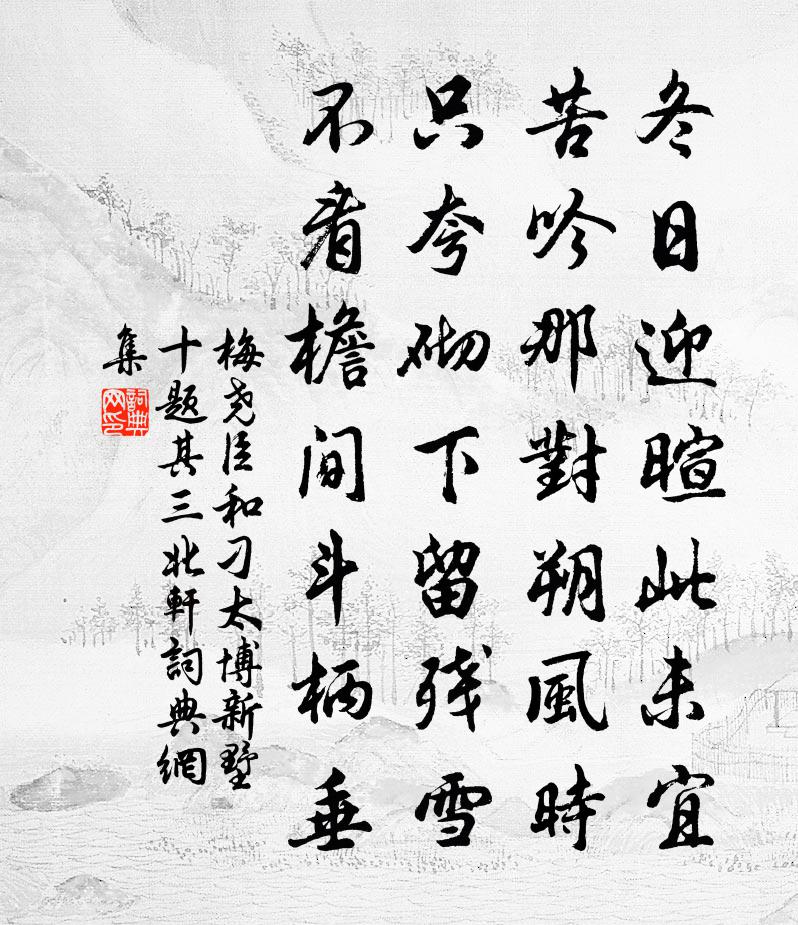 冬日迎暄此未宜
苦吟那對朔風時
只夸砌下留残雪
不看檐間斗柄垂
梅尧臣和刁太博新墅
十題其三北軒詞典網
集
詞典
网印